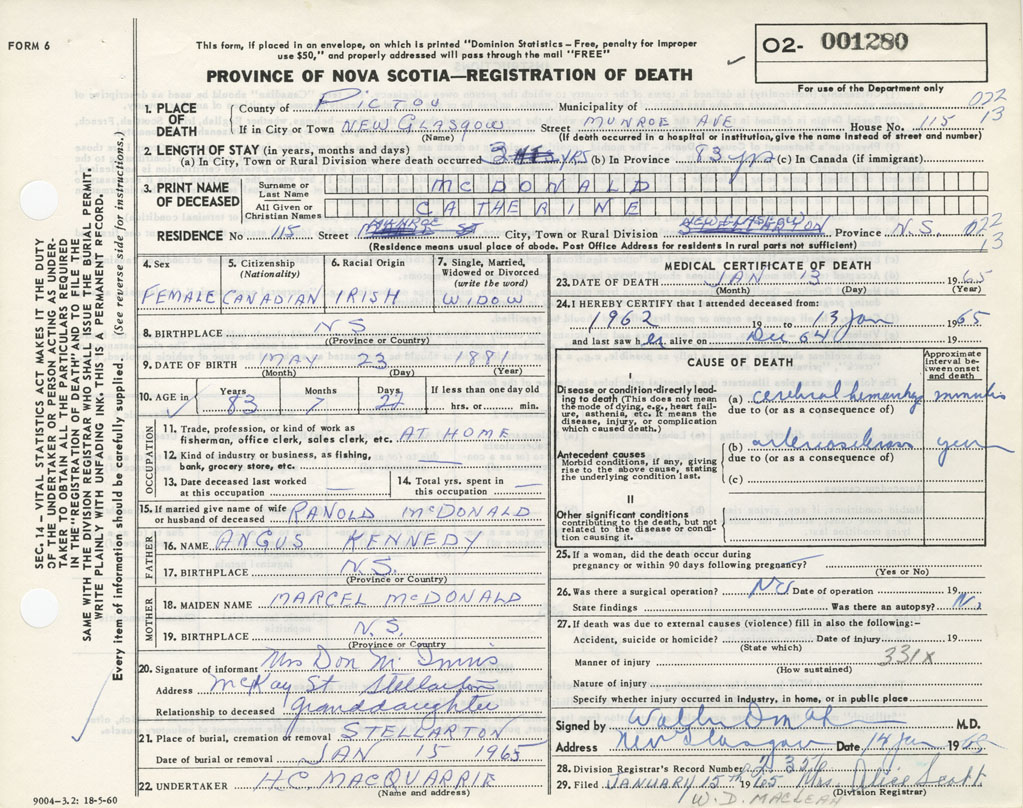 FORM 6
This form, if placed in an envelope, on which is printed "Dominion Statistics – Free, penalty for improper
use $50," and properly addressed will pass through the mail "FREE"
O2- 001280
For use of the Department only
PROVINCE OF NOVA SCOTIA—REGISTRATION OF DEATH
1. PLACE OF DEATH
County of PICTOU Municipality of 022
If in City or Town NEW GLASGOW Street MUNROE AVE House No. 115 13
(Name) (If death occurred in a hospital or institution, give the name instead of street and number)
2. LENGTH OF STAY (in years, months and days)
(a) In City, Town or Rural Division where death occurred 3 YRS (b) In Province 83 yrs (c) In Canada (if immigrant)
3. PRINT NAME OF DECEASED
Surname or Last Name McDONALD
All Given or Christian Names CATHERINE
RESIDENCE No 115 Street MUNROE ST City, Town or Rural Division Province N.S. 022
13
(Residence means usual place of abode. Post Office Address for residents in rural parts not sufficient)
4. Sex 5. Citizenship (Nationality) 6. Racial Origin 7. Single, Married, Widowed or Divorced (write the word)
FEMALE CANADIAN IRISH WIDOW
8. BIRTHPLACE NS
(Province or Country)
9. DATE OF BIRTH MAY 23 1881
(Month) (Day) (Year)
10. AGE in Years Months Days If less than one day old
83 7 22 hrs. or min.
OCCUPATION
11. Trade, profession, or kind of work as
fisherman, office clerk, sales clerk, etc. AT HOME
12. Kind of industry or business, as fishing,
bank, grocery store, etc.
13. Date deceased last worked at this occupation
14. Total yrs. spent in this occupation
15. If married give name of wife or husband of deceased RANOLD McDONALD
FATHER
16. NAME ANGUS KENNEDY
17. BIRTHPLACE N.S.
(Province or Country)
MOTHER
18. MAIDEN NAME MARCEL McDONALD
19. BIRTHPLACE N.S.
(Province or Country
20. Signature of informant Mrs Don McInnis
Address McKay St Stellarton
Relationship to deceased Granddaughter
21. Place of burial, cremation or removal STELLARTON
Date of burial or removal JAN 15 1965
22. UNDERTAKER H.C. MACQUARRIE
(Name and address)
9004-3.2: 18-5-60
MEDICAL CERTIFICATE OF DEATH
23. DATE OF DEATH JAN 13 1965
(Month) (Day) (Year)
24. I HEREBY CERTIFY that I attended deceased from:
1962 19 to 13 Jan 1965
and last saw her alive on Dec 64 19
CAUSE OF DEATH
Approximate interval between onset and death
I
Disease or condition directly leading to death (This does not mean the mode of dying, e.g., heart failure, asthenia, etc. It means the disease, injury, or complication which caused death.)
(a) cerebral hemorrhage minutes
due to (or as a consequence of)
Antecedent causes
Morbid conditions, if any, giving rise to the above cause, stating the underlying condition last.
(b) arteriosclerosis years
due to (or as a consequence of)
(c)
II
Other significant conditions
contributing to the death, but not related to the disease or condition causing it.
25. If a woman, did the death occur during
pregnancy or within 90 days following pregnancy?
(Yes or No)
26. Was there a surgical operation? No Date of operation 19
State findings Was there an autopsy? No
27. If death was due to external causes (violence) fill in also the following:–
Accident, suicide or homicide? Date of injury 19
(State which)
Manner of injury 331x
(How sustained)
Nature of injury
Specify whether injury occurred in industry, in home, or in public place
Signed by M.D.
Address New Glasgow Date 14 Jan 19
28. Division Registrar's Record Number
29. Filed JANUARY 15th 1965 Mrs. Alice Scott
(Division Registrar)
W. D. MACLEAN
SEC. 14 – VITAL STATISTICS ACT MAKES IT THE DUTY
OF THE UNDERTAKER OR PERSON ACTING AS UNDER-
TAKER TO OBTAIN ALL THE PARTICULARS REQUIRED
IN THE "REGISTRATION OF DEATH" AND TO FILE THE
SAME WITH THE DIVISION REGISTRAR WHO SHALL ISSUE THE BURIAL PERMIT.
WRITE PLAINLY WITH UNFADING INK. THIS IS A PERMANENT RECORD.
Every item of information should be carefully supplied. (See reverse side for instructions.)